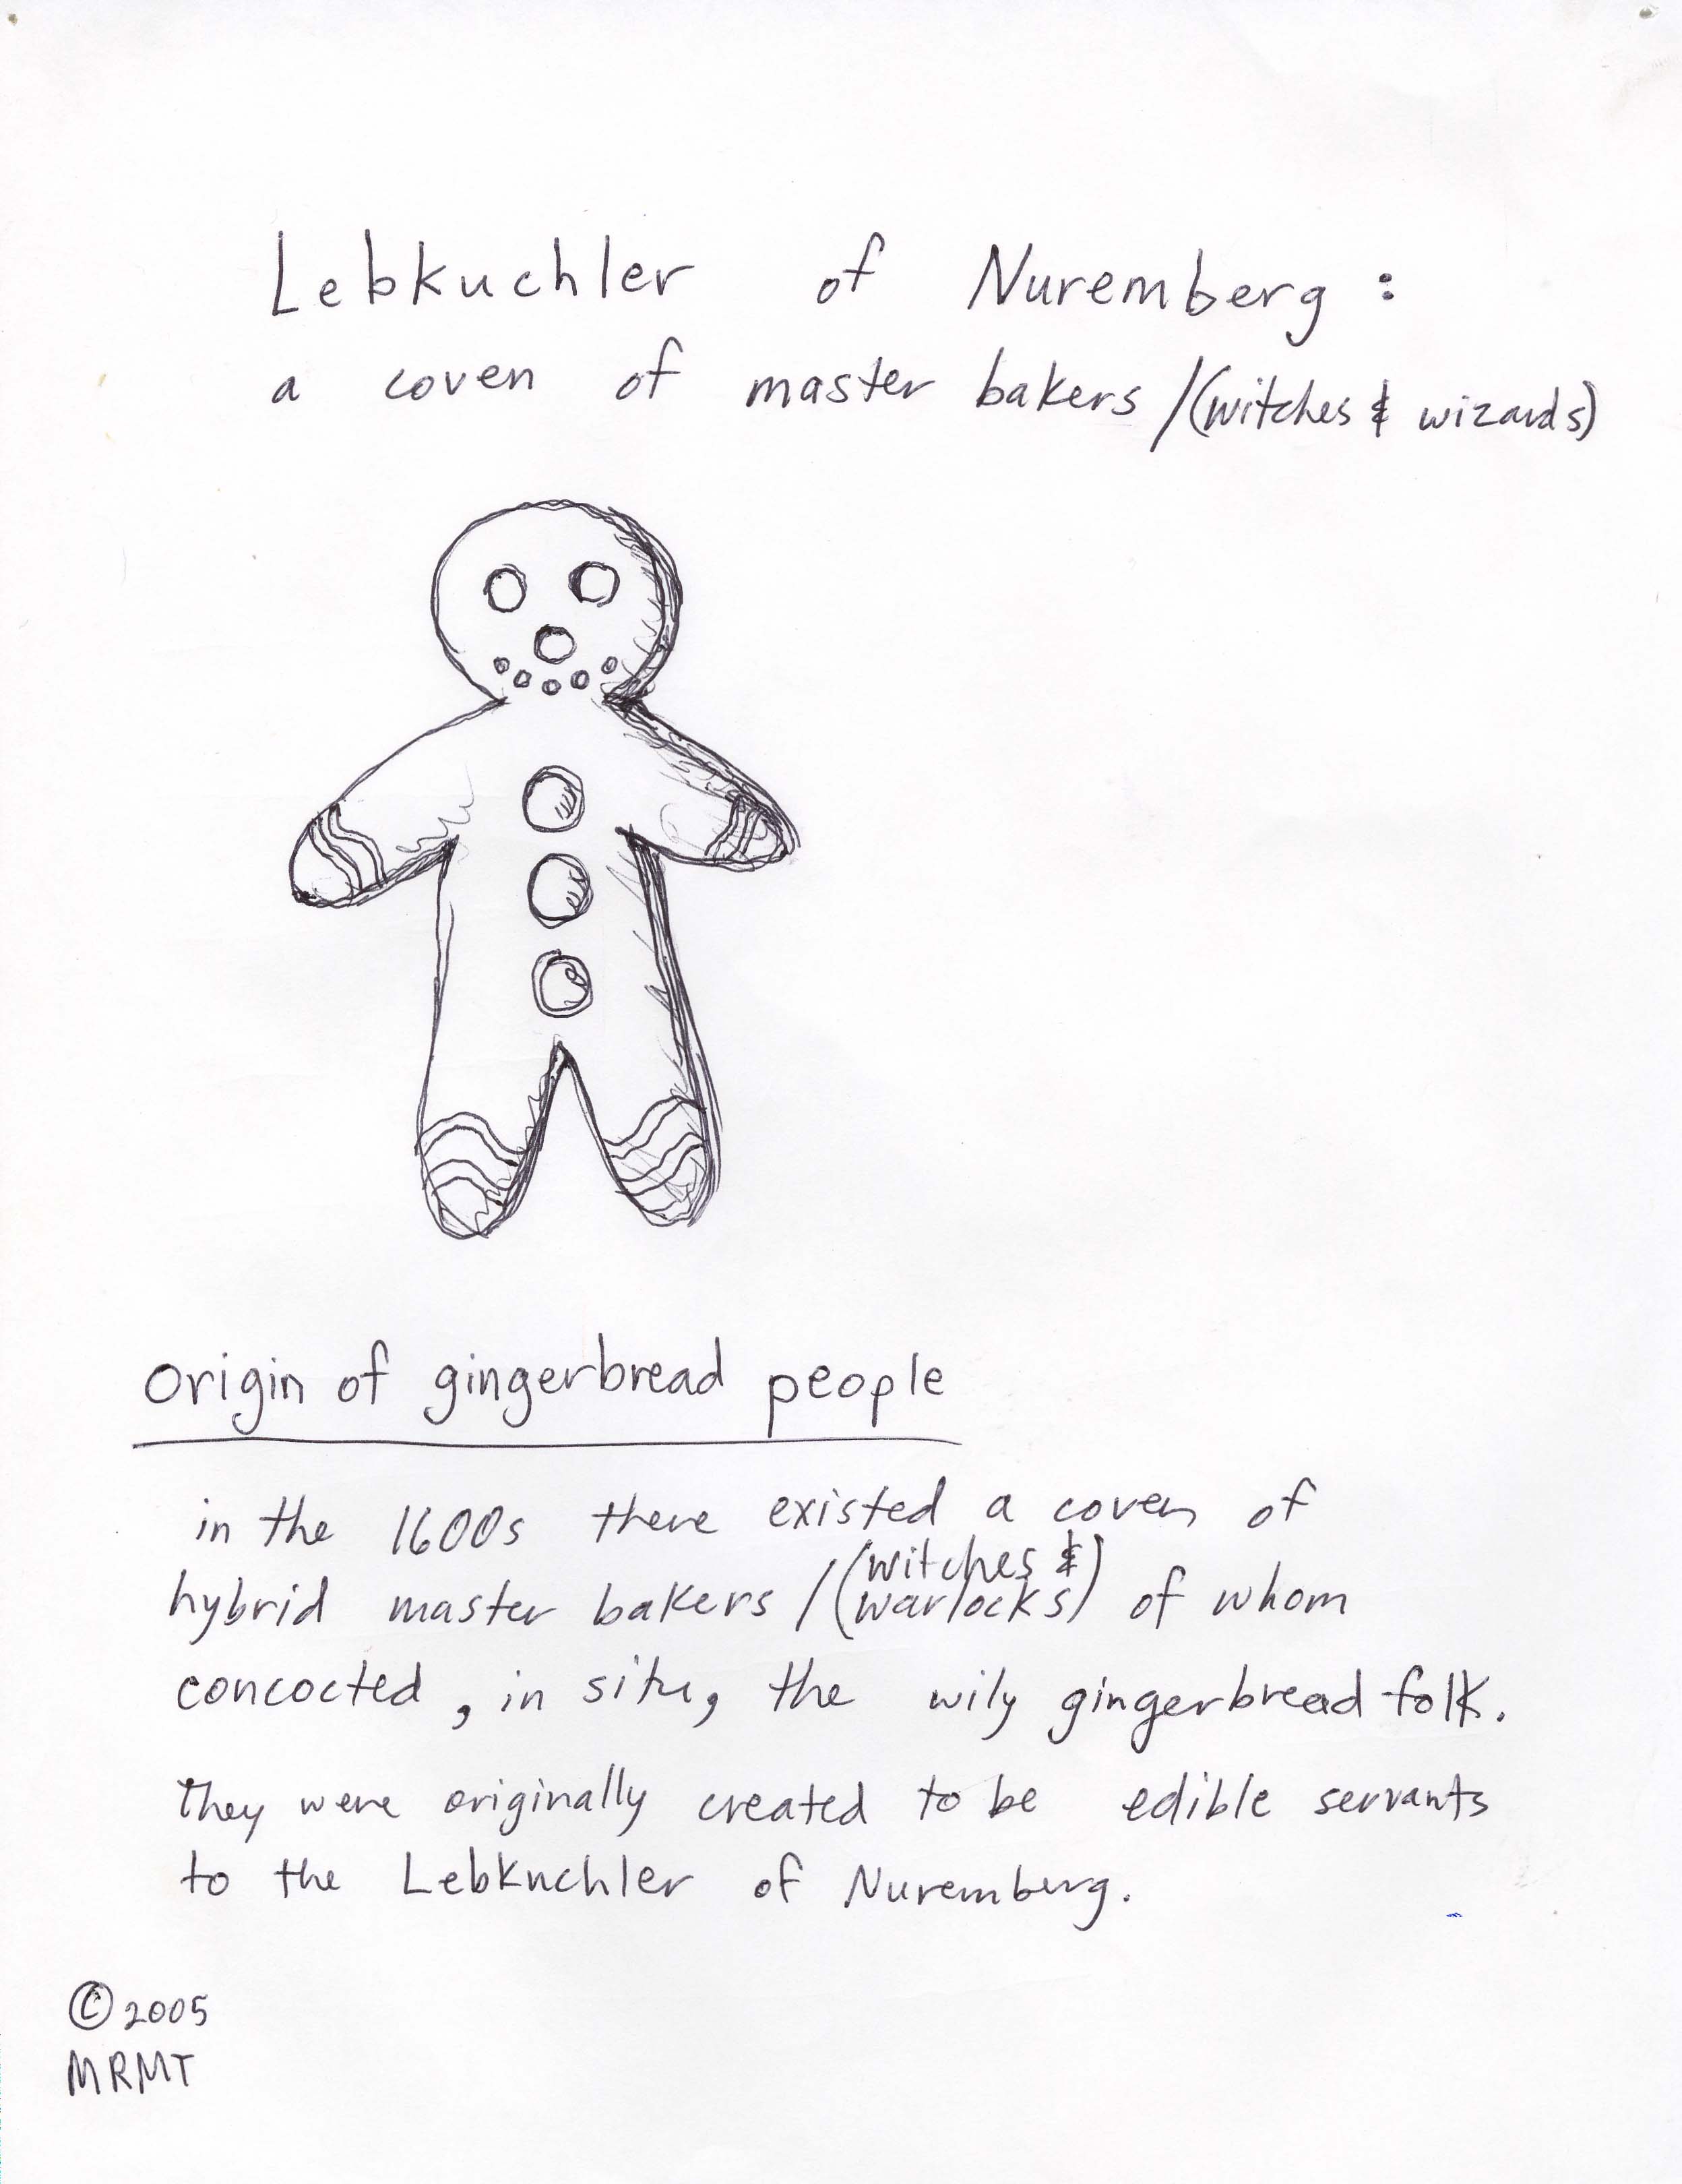 Lebkuchler of Nuremberg :
a coven of master bakers /(witches & wizards)
origin of gingerbread people
in the 1600s there existed a coven of
hybrid master bakers /(witches & warlocks) of whom
concocted, in situ, the wily gingerbread folk.
They were originally created to be edible servants
to the Lebkuchler of Nuremberg.
© 2005
MRMT